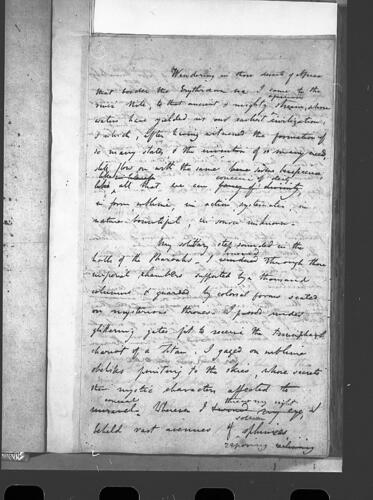 Wandering in those deserts of Africa
that border the Erythraean sea I came to the
river Nile, to that ancient & mighty & famous stream, whose
waters have yielded us our earliest civilization,
& which, after having witnessed the formation of
so many states & the invention of so many creeds,
still flow on with the same beneficence
like all that we can conceive of deity
fancy of divinity
in form sublime, in action, systematic, in
nature bountiful, in source unknown.
My solitary step sounded in the
halls of the Pharaohs. I wandered through those
imperial chambers supported by a thousand
columns & guarded by colossal forms seated
on mysterious thrones. I passed under
glittering gates fit to receive the triumphant
chariot of a Titan. I gazed on sublime
obelisks pointing to the skies, whose secrets
their mystic characters affected to
conceal
unravel. Wherever I threw my sight
my eye, I
beheld vast avenues of solemn
sphinxes
reposing reclining